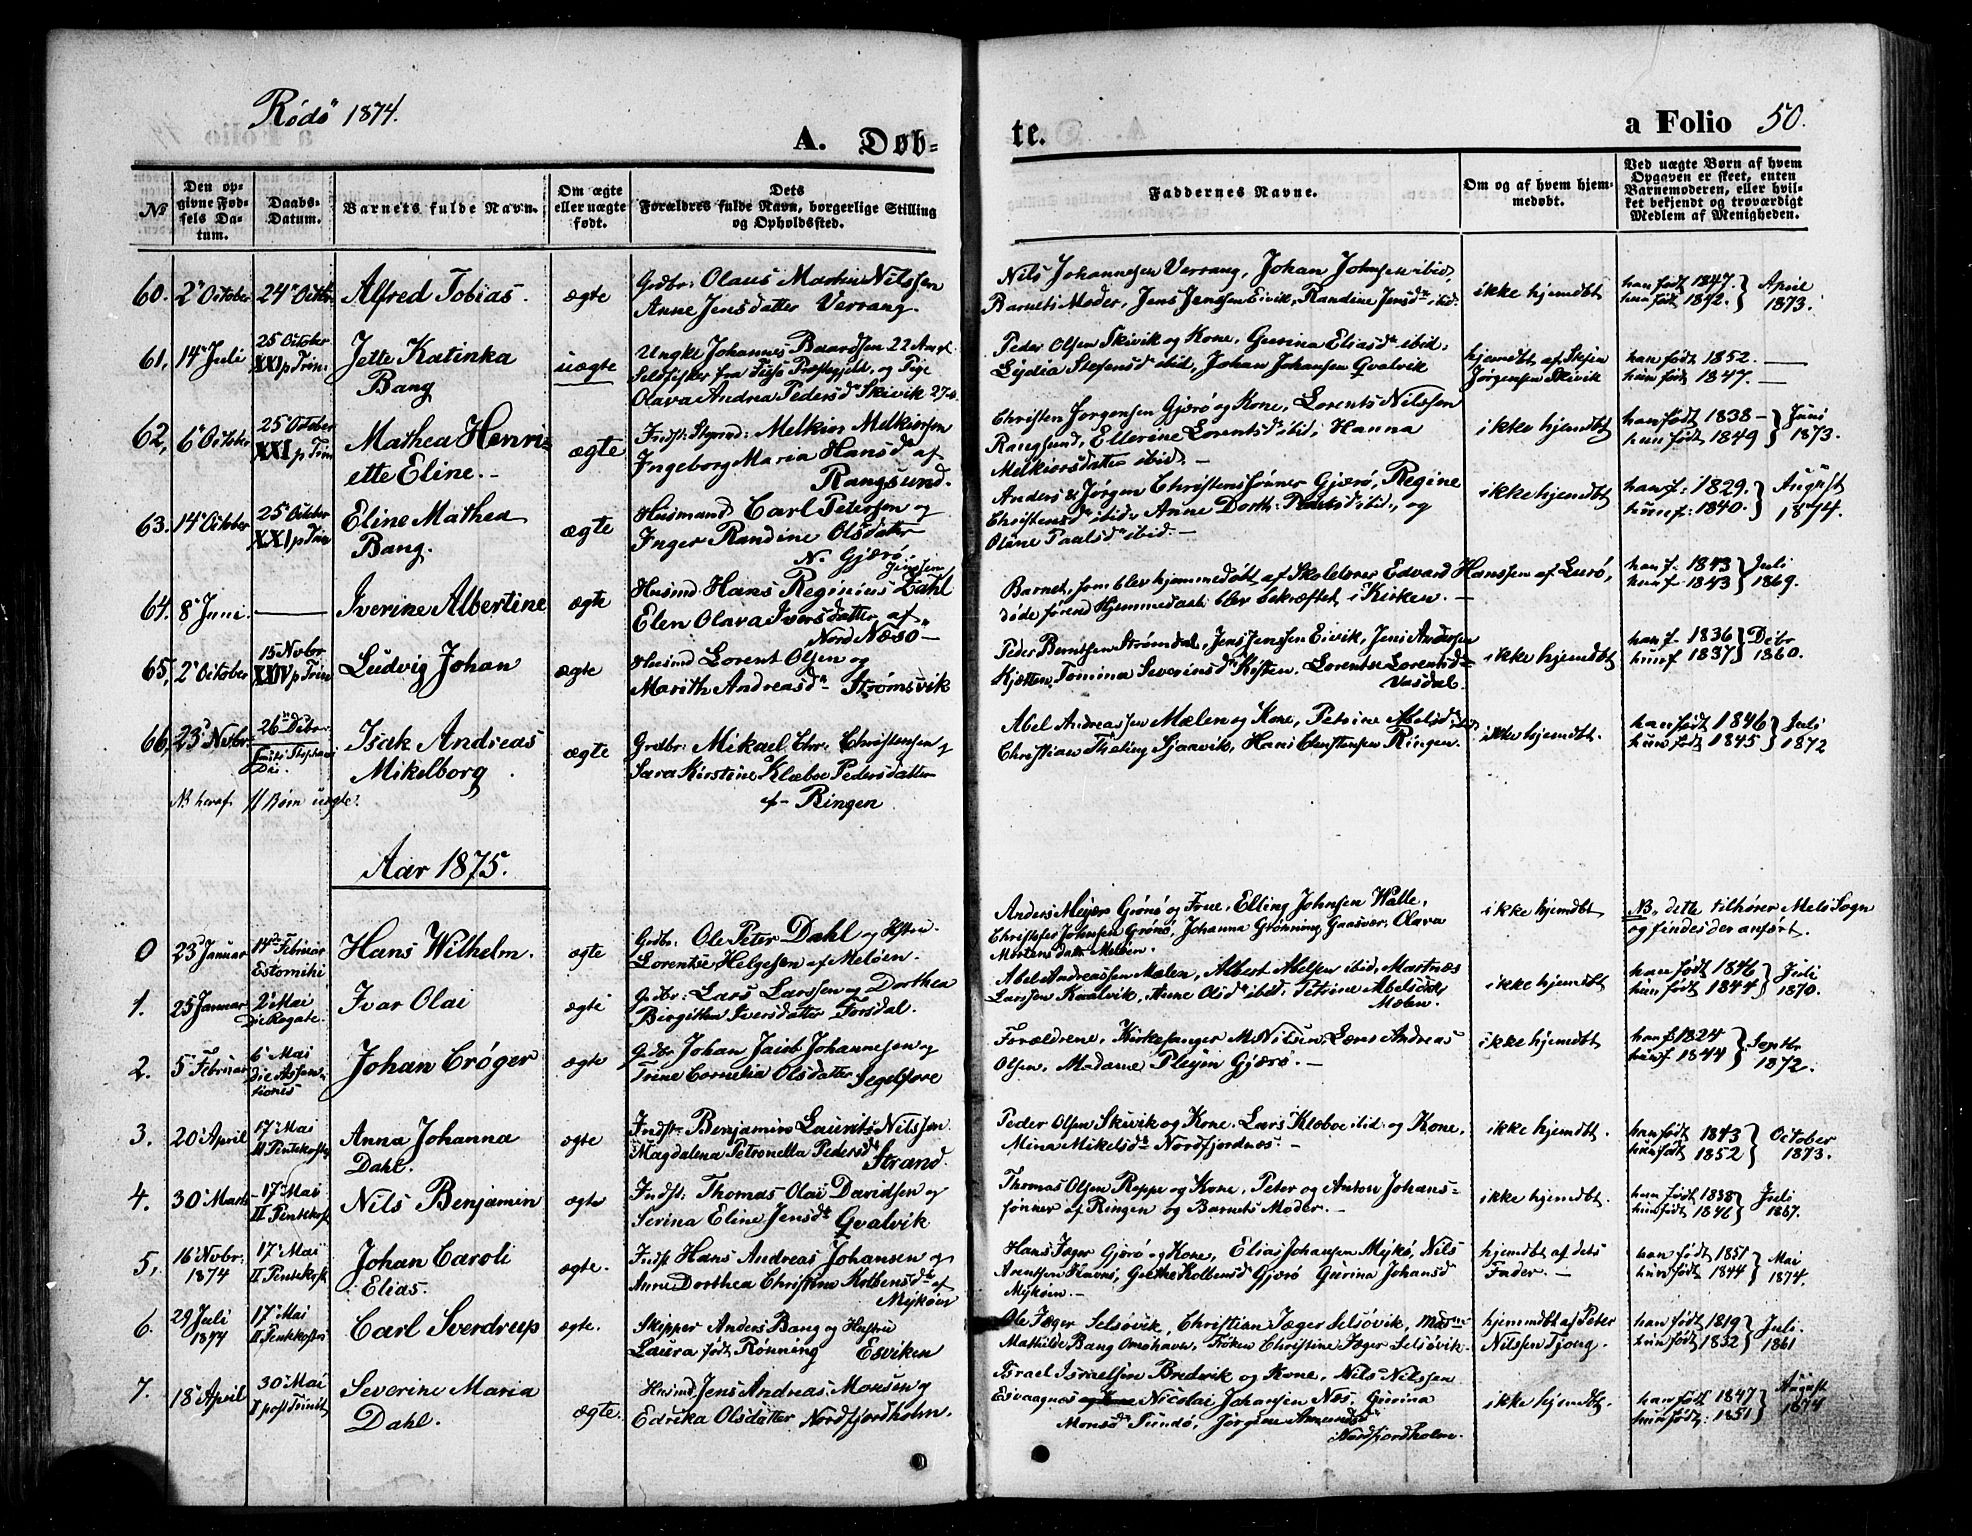 Rödö 1874.
A. Döb-
te.
a Folio 50.
No
Den op-
givne Fød-
sels Da-
tum.
Daabs-
Datum.
Barnets fulde Navn.
Om ægte
eller uægte
født.
Dets
Forældres fulde Navn, borgerlige Stilling
og Opholdssted.
Faddernes Navne.
Om og af hvem hjem-
medøbt.
Ved uægte Børn af hvem
Opgaven er skeet, enten
Barnemoderen, eller hvil-
ket bekjendt og troværdigt
Medlem af Menigheden.
60. 2 October 24 Octbr Alfred Tobias. ægte
Grdbr: Olaus Martin Nilssen
Anne Jensdatter Værrang.
Nils Johannesen Værrang, Johan Johnsen ibid,
Barnets Moder, Jens Jenssen Eivik, Randine Jensd ibid.
ikke hjemdbt
han født 1847.
hun født 1842.
April
1873.
61, 14 Juli
25 October
XXI p Trin:
Jette Katinka
Bang
uægte
Ungk Johannes Baardsen 22 Aar gl.
Selvfisker fra Præstegjeld, og Pige
Olava Andrea Pedersd Skivik 27
Peder Olsen Skivik og Kone, Gurina Eliasd ibid,
Lydia Stefensd ibid, Johan Johansen Qvalvik
hjemdbt af
Jørgensen Skivik
han født 1852. —
hun født 1847. —
62, 6 October
25 October
XXI p Trin
Mathea Henri-
ette Eline. -
ægte
Indst: Melkior Melkiorsen
Ingeborg Maria Hansd af
Rangsund.
Christen Jørgensen Gjærø og Kone, Lorents Nilssen
Rangsund, Ellerine Lorentsd ibid, Hanna
Melkiorsdatter ibid. -
ikke hjemdbt
han født 1838 -
hun født 1849
Juni
1873.
63. 14 October
25 October
XXI p Trin
Eline Mathea
Bang.
ægte
Husmand Carl Petersen og
Inger Randine Olsdatter
N. Gjærø.
Anders & Jørgen Christenssønner Gjærø, Regine
Christensd ibid, Anne Dorth: ibid, og
Oline Paalsd ibid. -
ikke hjemdbt
han f: 1829.
hun f: 1840.
August
1874.
64. 8 Juni. — Iverine Albertine ægte
Husmd Hans Reginius Jenssen Dahl
Elen Olava Iversdatter af
Nord Næsø -
Barnet, som blev hjemmedøbt af Skolelærer Edvard Hanssen af Lurø,
døde førend Hjemmedaab: blev bekræftet i Kirken. -
han f. 1843
hun f: 1843
Juli
1869.
65, 2 October
15 Novbr
XXIV p Trin
Ludvig Johan
ægte
Husmd Lorent Olsen og
Marith Andreasd Strømsvik
Peder Berntsen Strømdal, Jens Jenssen Eivik, Jens Andersen
Kjøtten, Tomina Severinsd Kisten, Lorentse Lorentsd
Vasdal.
ikke hjemdbt
han f. 1836
hun f 1837
Debr
1860.
66, 23 Novbr
26 Debr
Isak Andreas
Mikelborg
ægte
Grdbr: Mikael Chr: Christensen og
Sara Kirstine Klæboe Pedersdatter
af - Ringen
Abel Andreassen Mælen og Kone, Petrine Abelsd ibid,
Christian Sjaavik, Hans Christensen Ringen.
ikke hjemdbt.
han født 1846
hun født 1845
Juli
1872
NB heraf 11 Børn uægte.
Aar 1875.
0 23 Januar
14 Februar
Estomihi
Hans Wilhelm.
ægte
Grdbr: Ole Peter Dahl og Hstru.
Lorentse Helgesen af Meløen.
Anders Meyer Grønø og Frue, Elling Johnsen Walle,
Christofer Johnsen Grønø, Johanna Grønning Gaasvær, Olava
Mortensdatter Meløen.
ikke hjemdbt
NB. dette tilhører Melø Sogn
og findes der anført.
1. 25 Januar
2 Mai
Die Rogate.
Ivar Olai
ægte
Grdbr: Lars Larssen og Dorthea
Birgitha Iversdatter Torsdal.
Abel Andreassen Mælen, Albert Abelsen ibid, Martnæs
Larssen Kvalvik, Anne Olsd ibid, Petrine Abelsdatt
Mælen.
ikke hjemdbt
han født 1846
hun født 1844
Juli
1870.
2. 5 Februar
6 Mai
Die Ascen-
tionis
Johan Crøger
ægte
Grdbr Johan Jacob Johannesen og
Trine Cornelia Olsdatter Segelfore
Forældrene, Kirkesanger M. Nilsen, Lærer Andreas
Olsen, Madame Pleym Gjærø. -
ikke hjemdbt
han f 1824
hun f. 1844
Septbr
1872.
3. 20 April
17 Mai
II Pentekosty
Anna Johanna
Dahl.
ægte
Indst Benjamin Laurits Nilssen
Magdalena Petronella Pedersd
Strand.
Peder Olsen Skivik og Kone, Lars Klæboe ibid og Kone,
Mina Mikelsd Nordfjordnæs. -
ikke hjemdbt.
han født 1843
hun født 1852
October
1873.
4. 30 Marts
17 Mai
II Pentekost
Nils Benjamin
ægte
Indst: Thomas Olai Davidsen og
Serina Eline Jensd Qvalvik
Thomas Olsen Reppe og Kone, Peter og Anton Johans-
sønner af Ringen og Barnets Moder. -
ikke hjemdbt.
han født 1838
hun født 1846
Juli
1867.
5, 16 Novbr:
1874
17 Mai
II Pentekost
Johan Caroli
Elias.
ægte.
Indst Hans Andreas Johansen og
Anne Dorthea Christine Kolbensd af
Mykøen
Hans Jæger Gjerø og Kone, Elias Johansen Mykø, Nils
Arentsen Havnø, Grethe Kolbensd Gjærø Gurina Johansd
Mykøen. -
hjemdbt af dets
Fader. -
han født 1851
hun født 1844
Mai
1874.
6. 29 Juli
1874
17 Mai
II Pentekost
Carl Sverdrup
ægte.
Skipper Anders Bang og Hustru
Laura født Rønning Esviken
Ole Jæger Selsøvik, Christian Jæger Selsøvik,
Mathilde Bang Omøhavn, Frøken Christine Jæger Selsøvik.
hjemmdbt af Peter
Nilssen Tjong.
han født 1819
hun født 1832
Juli
1861
7. 18 April
30 Mai
I post Trinit
Severine Maria
Dahl.
ægte.
Husmd Jens Andreas Monsen og
Edrika Olsdatter Nordfjordholm.
Israel Israelsen Bredvik og Kone, Nils Nilssen
Esvaagnæs Nicolai Johansen Næs, Gurina
Monsd Sundø, Jørgine
Nordfjordholm.
ikke hjemdbt.
han født 1847
hun født: 1851
August
1874